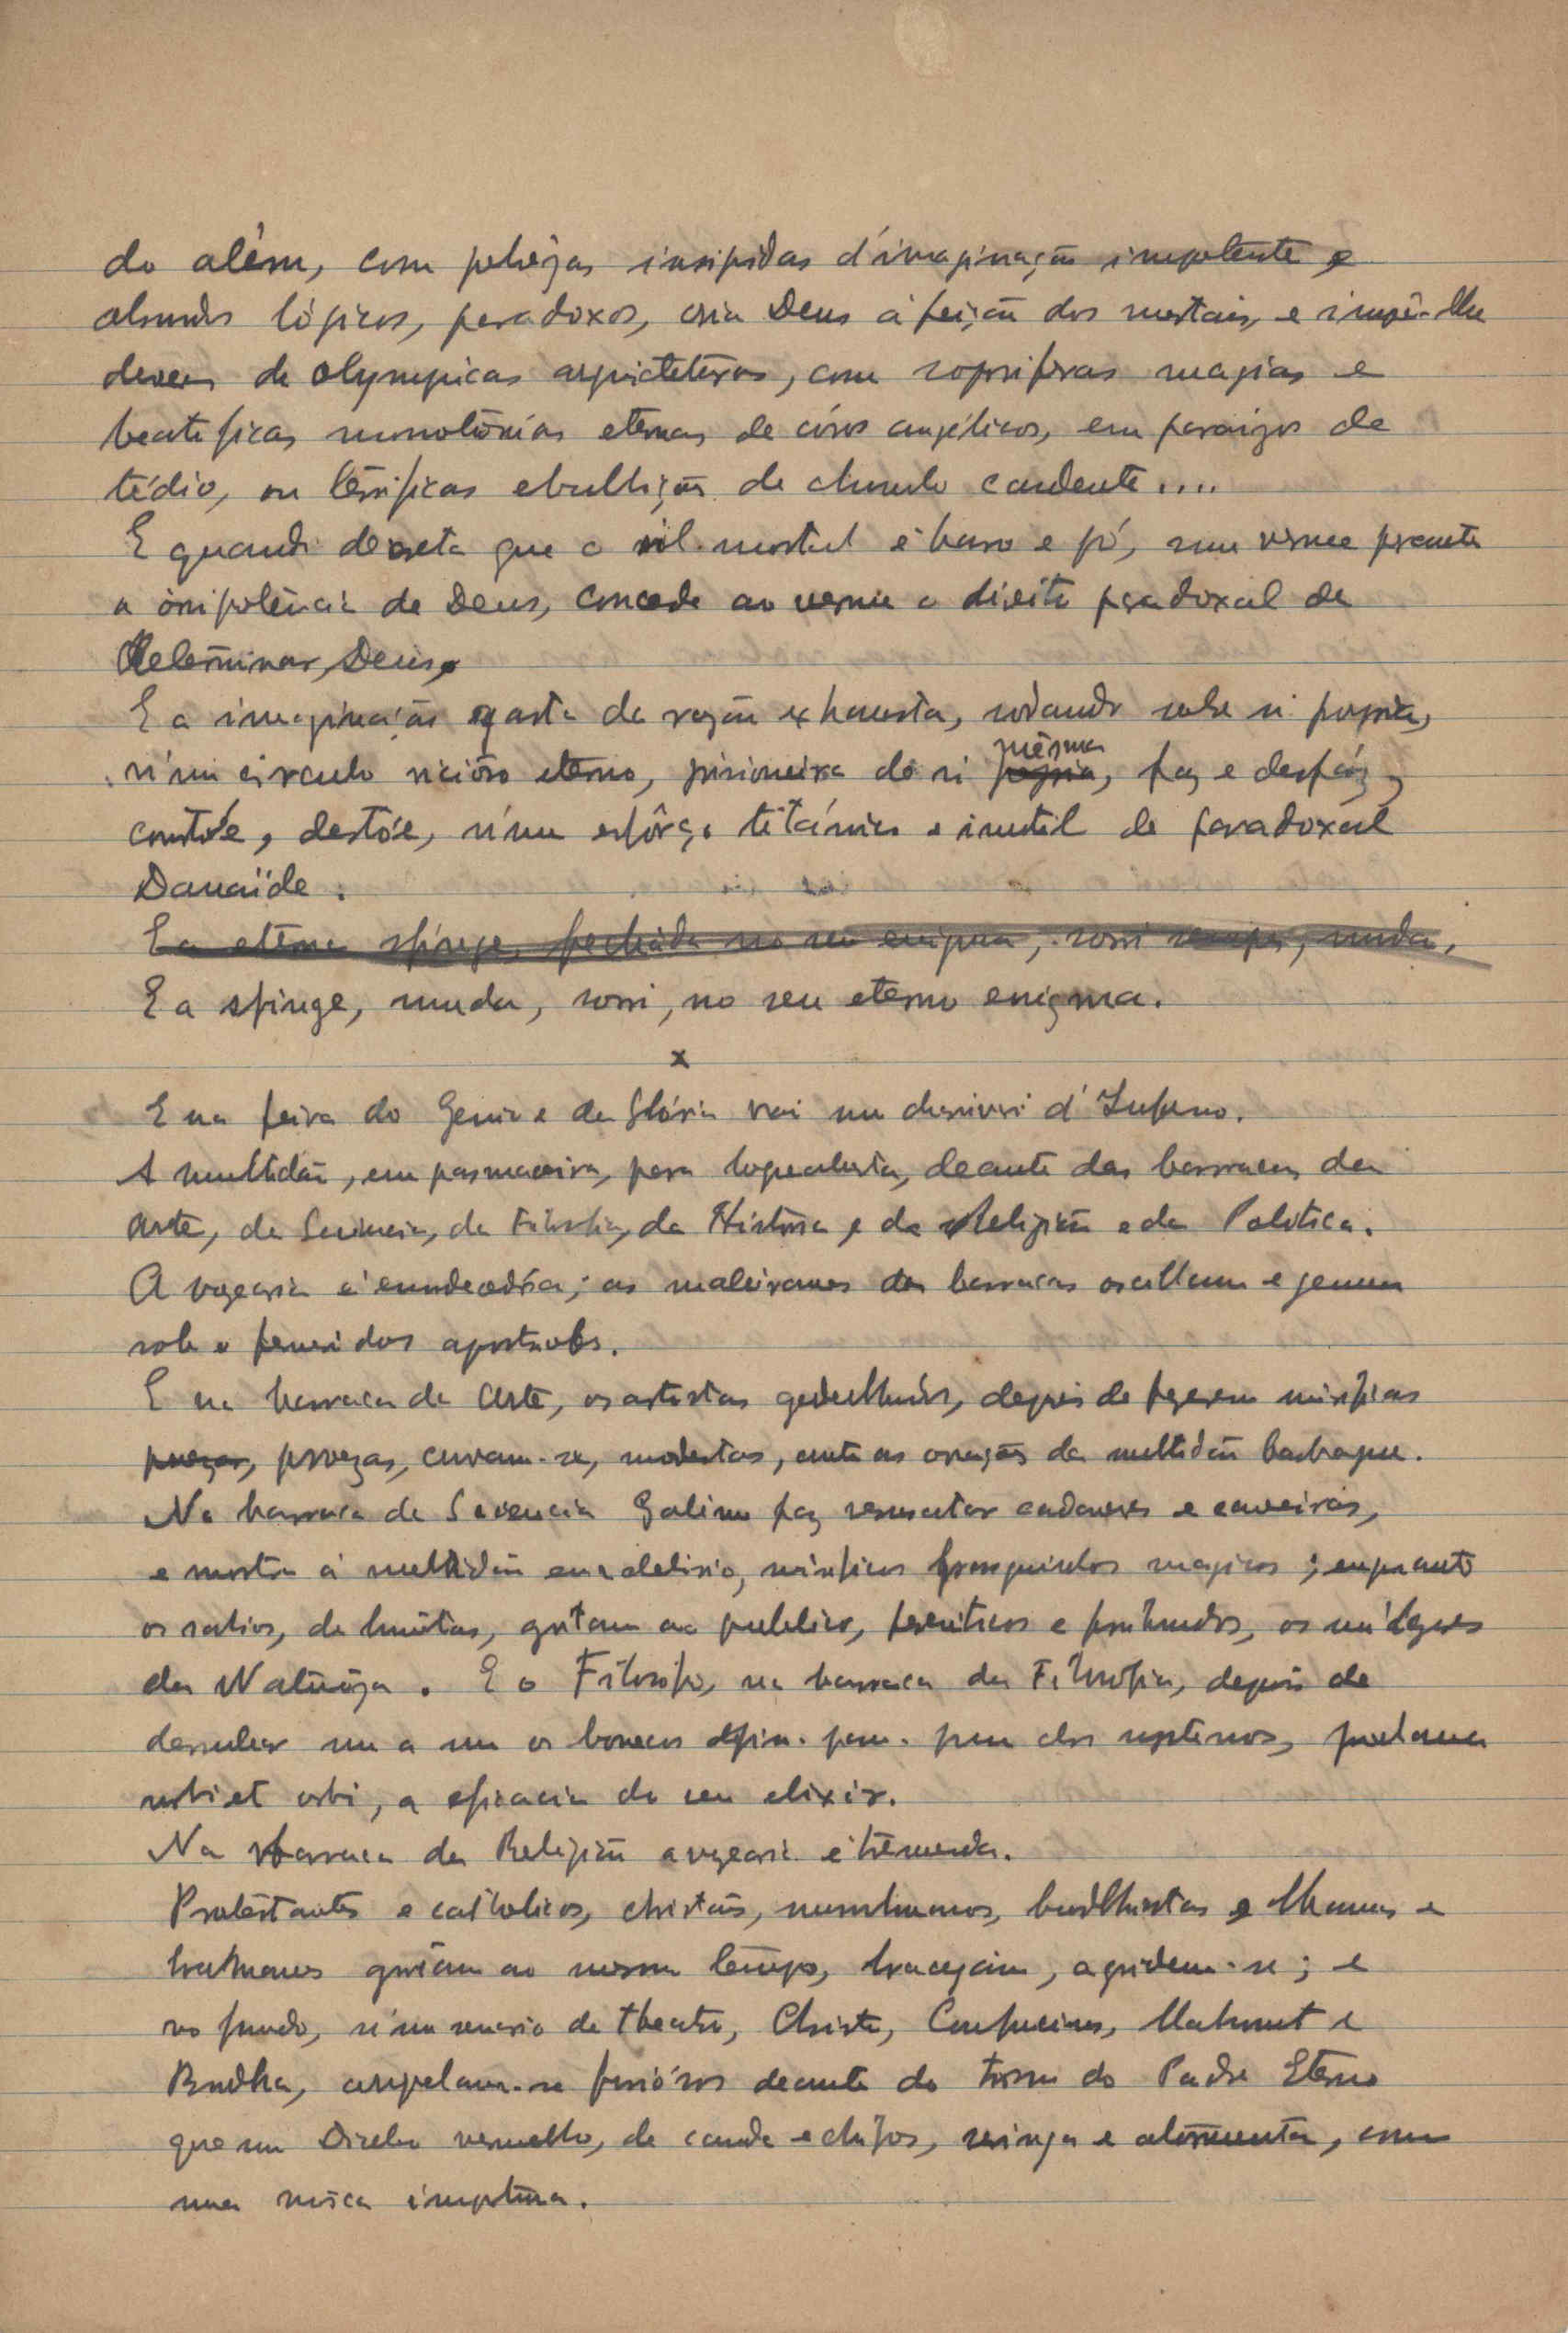 do além, com pobrêzas insipidas d'imaginação impotente e
absurdos lógicos, paradoxos, cria Deus á feição dos mortais, e impõe-lhe
deveres de olympicas arquicteturas, com soporiferas magias e
beatificas monotonias eternas de córos angélicos, em paraizos de
tédio, ou terrificas ebullições de chumbo candente....
E quando decreta que o vil mortal é barro e pó, um verme perante
a ónipotência de Deus, concede ao verme o direito paradoxal de
Determinar Deus.
E a imaginação gasta da razão exhausta, rodando sobre si propria,
n'um circulo vicioso eterno, prisioneira de si propria, mêsma, faz e desfáz,
constróe, destróe, n'um esfôrço titánico e inutil de paradoxal
Danaïde.
E a eterna sfinge, fechada no seu enigma, sorri sempre, muda.
E a sfinge, muda, sorri, no seu eterno enigma.
x
E na feira do Genio e da Glória vai um charivari d'Inferno.
A multidão, em pasmaceira, para boquiaberta, deante das barracas da
Arte, da Sciencia, da Filosofia, da História e da Religião e da Politica.
A vozearia é ensurdecedora; os madeirames das barracas oscillam e gemem
sob o frenesi dos apostolos.
E na barraca da Arte, os artistas guedelhudos, depois de fazerem mirificas
proezas, proezas, curvam-se, modestos, ante as ovações da multidão basbaque.
Na barraca da Sciencia Galeno faz ressuscitar cadaveres e caveiras,
e mostra á multidão em delirio, mirificos frasquinhos magicos; emquanto
os sabios, de lunêtas, gritam ao publico, freneticos e profundos, os milagres
da Naturêza. E o Filosofo, na barraca da Filosofia, depois de
derrubar um a um os bonecos do pim-pam-pum dos sistemas, proclama
urbi et orbi, a eficacia do seu elixir.
Na barraca da Religião a vozearia é tremenda.
Protestantes e catholicos, christãos, musulmanos, budhistas e lhamas e
brahmanes gritam ao mesmo tempo, bracejam, agridem-se; e
no fundo, n'um scenario de theatro, Christo, Confucius, Mahomet e
Budha, arrepelam-se furiósos deante do trono do Padre Eterno
que um Diabo vermelho, de cauda e chifres, seringa e atormenta, como
uma mosca importuna.